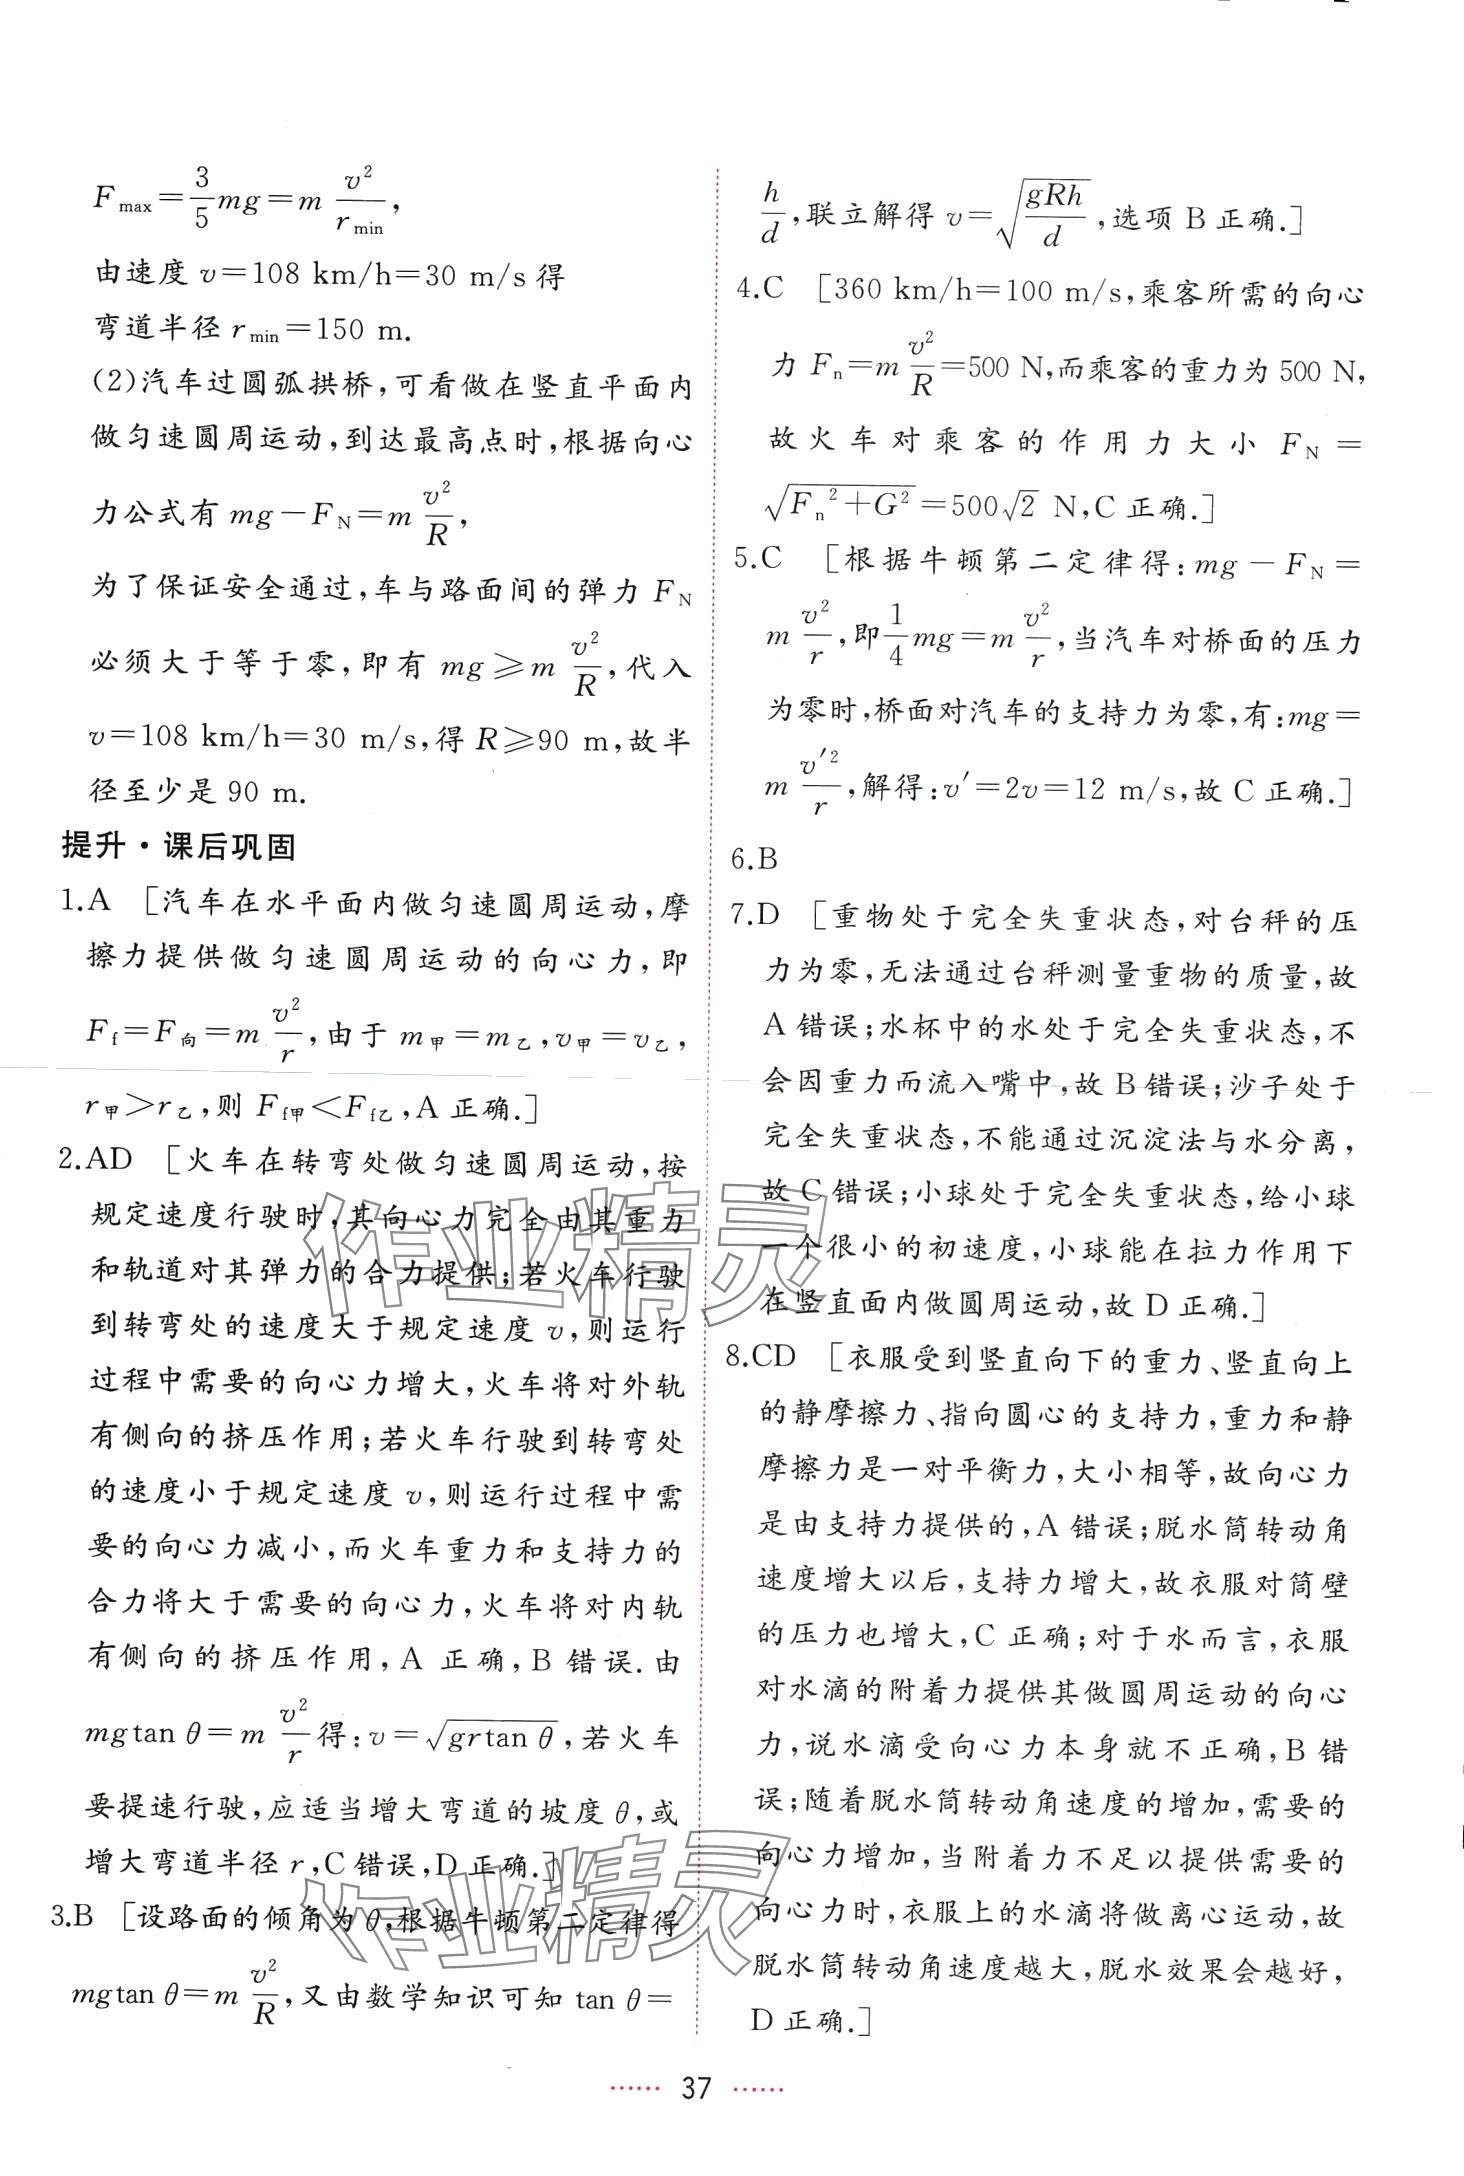 F_max=3/5mg=m v²/r_min,
由速度 v=108 km/h=30 m/s得
弯道半径 r_min=150 m.
(2)汽车过圆弧拱桥,可看做在竖直平面内
做匀速圆周运动,到达最高点时,根据向心
力公式有 mg-F_N=m v²/R,
为了保证安全通过,车与路面间的弹力 F_N
必须大于等于零,即有 mg≥m v²/R,代入
v=108 km/h=30 m/s,得 R≥90 m,故半
径至少是 90 m.
提升·课后巩固
1.A [汽车在水平面内做匀速圆周运动,摩
擦力提供做匀速圆周运动的向心力,即
F_f=F_向=m v²/r,由于 m_甲=m_乙,v_甲=v_乙,
r_甲>r_乙,则 F_f甲<F_f乙,A 正确.]
2.AD [火车在转弯处做匀速圆周运动,按
规定速度行驶时,其向心力完全由其重力
和轨道对其弹力的合力提供;若火车行驶
到转弯处的速度大于规定速度 v,则运行
过程中需要的向心力增大,火车将对外轨
有侧向的挤压作用;若火车行驶到转弯处
的速度小于规定速度 v,则运行过程中需
要的向心力减小,而火车重力和支持力的
合力将大于需要的向心力,火车将对内轨
有侧向的挤压作用,A 正确,B 错误.由
mgtan θ=m v²/r得:v=√(grtan θ),若火车
要提速行驶,应适当增大弯道的坡度 θ,或
增大弯道半径 r,C 错误,D 正确.]
3.B [设路面的倾角为 θ,根据牛顿第二定律得
mgtan θ=m v²/R,又由数学知识可知 tan θ=
h/d,联立解得 v=√(gRh/d),选项 B 正确.]
4.C [360 km/h=100 m/s,乘客所需的向心
力 F_n=m v²/R=500 N,而乘客的重力为 500 N,
故火车对乘客的作用力大小 F_N=
√(F_n²+G²)=500√2 N,C 正确.]
5.C [根据牛顿第二定律得:mg-F_N=
m v²/r,即1/4mg=m v²/r,当汽车对桥面的压力
为零时,桥面对汽车的支持力为零,有:mg=
m v′²/r,解得:v′=2v=12 m/s,故 C 正确.]
6.B
7.D [重物处于完全失重状态,对台秤的压
力为零,无法通过台秤测量重物的质量,故
A 错误;水杯中的水处于完全失重状态,不
会因重力而流入嘴中,故 B 错误;沙子处于
完全失重状态,不能通过沉淀法与水分离,
故 C 错误;小球处于完全失重状态,给小球
一个很小的初速度,小球能在拉力作用下
在竖直面内做圆周运动,故 D 正确.]
8.CD [衣服受到竖直向下的重力、竖直向上
的静摩擦力、指向圆心的支持力,重力和静
摩擦力是一对平衡力,大小相等,故向心力
是由支持力提供的,A 错误;脱水筒转动角
速度增大以后,支持力增大,故衣服对筒壁
的压力也增大,C 正确;对于水而言,衣服
对水滴的附着力提供其做圆周运动的向心
力,说水滴受向心力本身就不正确,B 错
误;随着脱水筒转动角速度的增加,需要的
向心力增加,当附着力不足以提供需要的
向心力时,衣服上的水滴将做离心运动,故
脱水筒转动角速度越大,脱水效果会越好,
D 正确.]
作业精灵
作业精灵
37